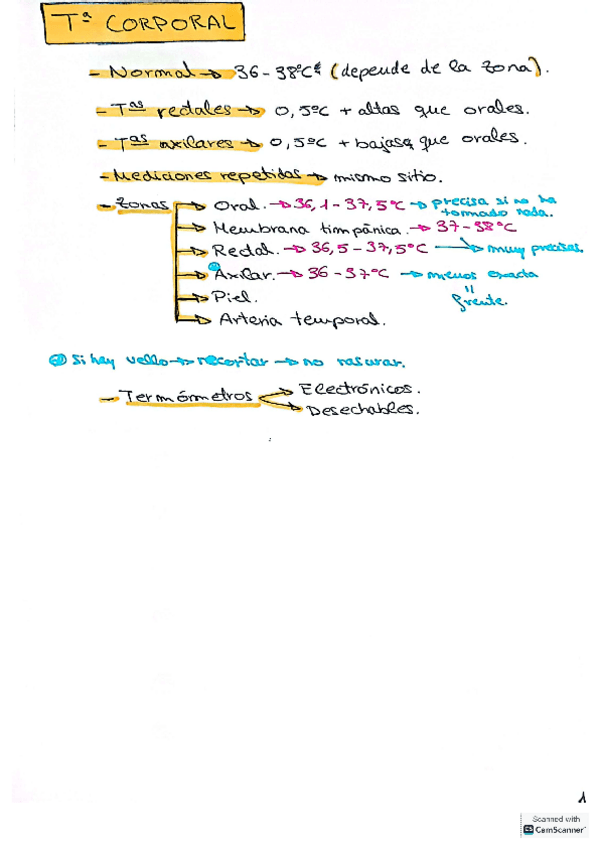 Tª CORPORAL
- Normal → 36 - 38ºC (depende de la zona).
- Tªs rectales → 0,5ºC + altas que orales.
- Tªs axilares → 0,5ºC + bajas que orales.
- Mediciones repetidas → mismo sitio.
- Zonas → Oral. → 36,1 - 37,5ºC → precisa si no ha tomado nada.
→ Membrana timpánica. → 37 - 38ºC
→ Rectal. → 36,5 - 37,5ºC → muy precisas.
→ Axilar. → 36 - 37ºC → menos exacta
→ Piel. = frente.
→ Arteria temporal.
Si hay vello → recortar → no rasurar.
- Termómetros → Electrónicos.
→ Desechables.
1
Scanned with
CS CamScanner